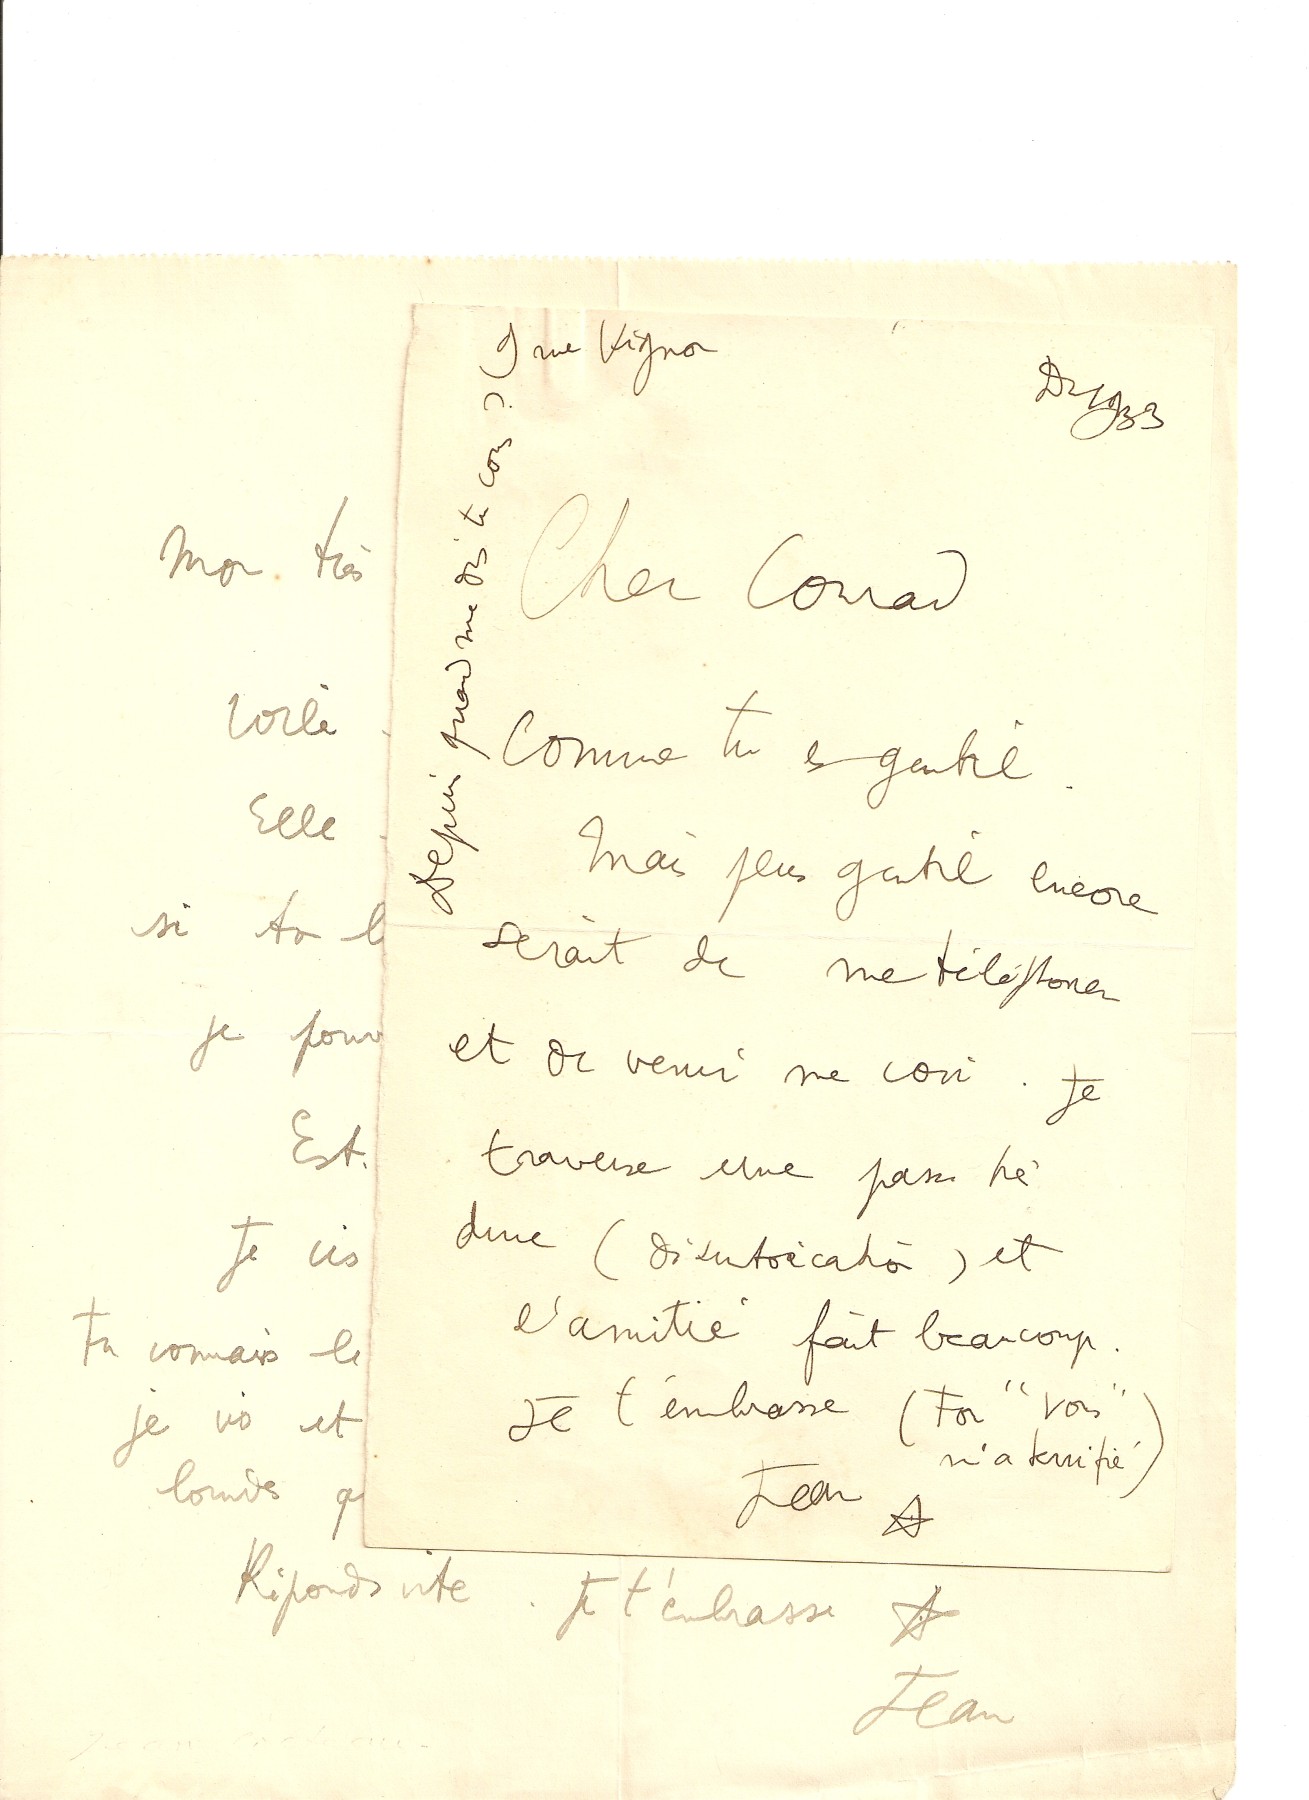 9 rue Vignon
Dec 1933
Cher Conrad
Comme tu es gentil.
Mais plus gentil encore
serait de me téléphoner
et de venir me voir. Je
traverse une passe très
dure (désintoxication) et
l'amitié fait beaucoup.
Je t'embrasse (Ton "vous"
m'a terrifié)
Jean
Depuis quand me dis tu vous?
Mon très
Voilà
Elle
si tu l
je pouv
Est.
Je vis
Tu connais le
je vis et
lourdes q
Réponds vite. Je t'embrasse
Jean